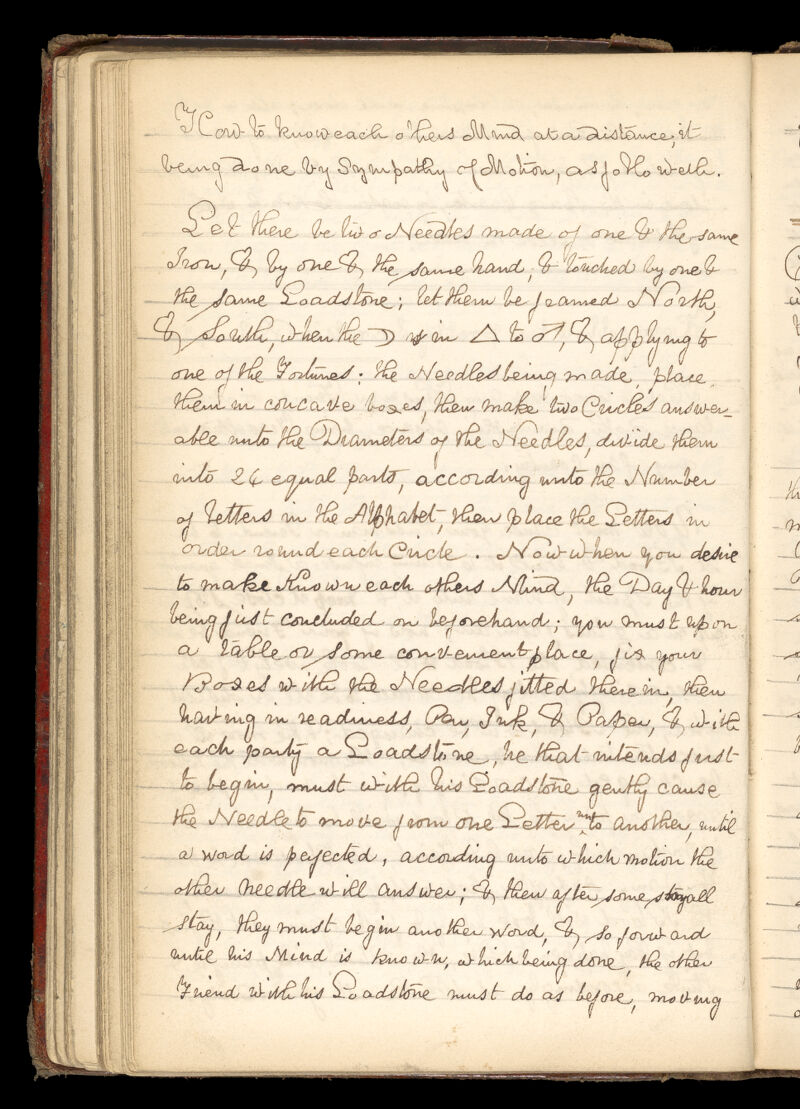 How to know each others Mind at a distance, it
being done by Sympathy of Motion, as followeth.
Let there be two Needles made of one & the same
Iron, & by one & the same hand, & touched by one &
the same Loadstone; let them be framed North,
& South, when the ☽ is in △ to ♂, & applying to
one of the Fortunes: the Needles being made, place
them in concave boxes, then make two Circles answer=
able unto the Diameters of the Needles, divide them
into 24 equal parts, according unto the Number
of letters in the Alphabet, then place the Letters in
order round each Circle. Now when you desire
to make Known each others Mind, the Day & hour
being first concluded on beforehand; you must upon
a table or some convenient place, fix your
Boxes with the Needles fitted therein, then
having in readiness, Pen, Ink, & Paper, & with
each party a Loadstone, he that intends first
to begin, must with his Loadstone gently cause
the Needle to move from one Letter unto another, until
a word is perfected, according unto which motion the
other needle will answer; & then after some small
stay, they must begin another word, & so forward
until his Mind is known, which being done, the other
Friend with his Loadstone must do as before, moving